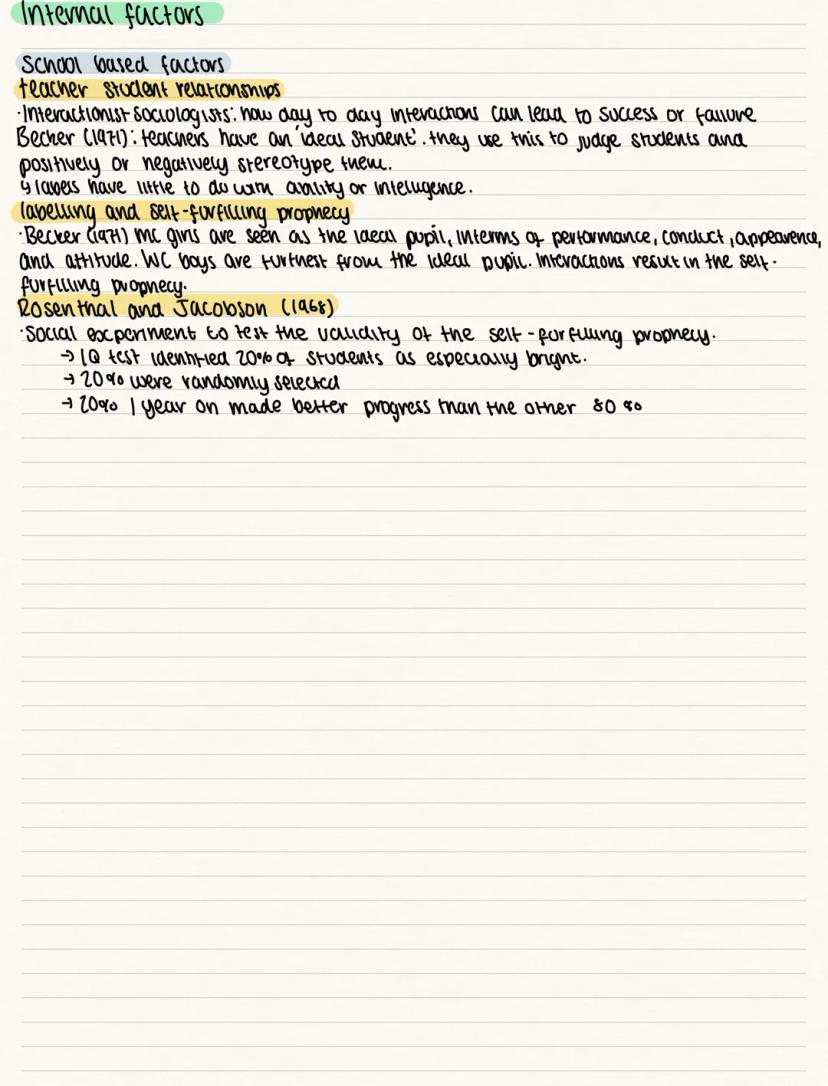 Internal factors
School based factors
teacher student relationships
·Interactionist sociologists: how day to day interactions can lead to success or failure
Becker (1971): teachers have an 'ideal student'. they use this to judge students and
positively or negatively stereotype them.
↳ labels have little to do with ability or intelligence.
labelling and self-furfilling prophecy
·Becker (1971) MC girls are seen as the ideal pupil, interms of performance, conduct, appearence,
and attitude. WC boys are furthest from the ideal pupil. Interactions result in the self-
furfilling prophecy.
Rosenthal and Jacobson (1968)
·Social experiment to test the validity of the self-furfilling prophecy.
→ IQ test identified 20% of students as especially bright.
→ 20% were randomly selected
→ 20% 1 year on made better progress than the other 80%